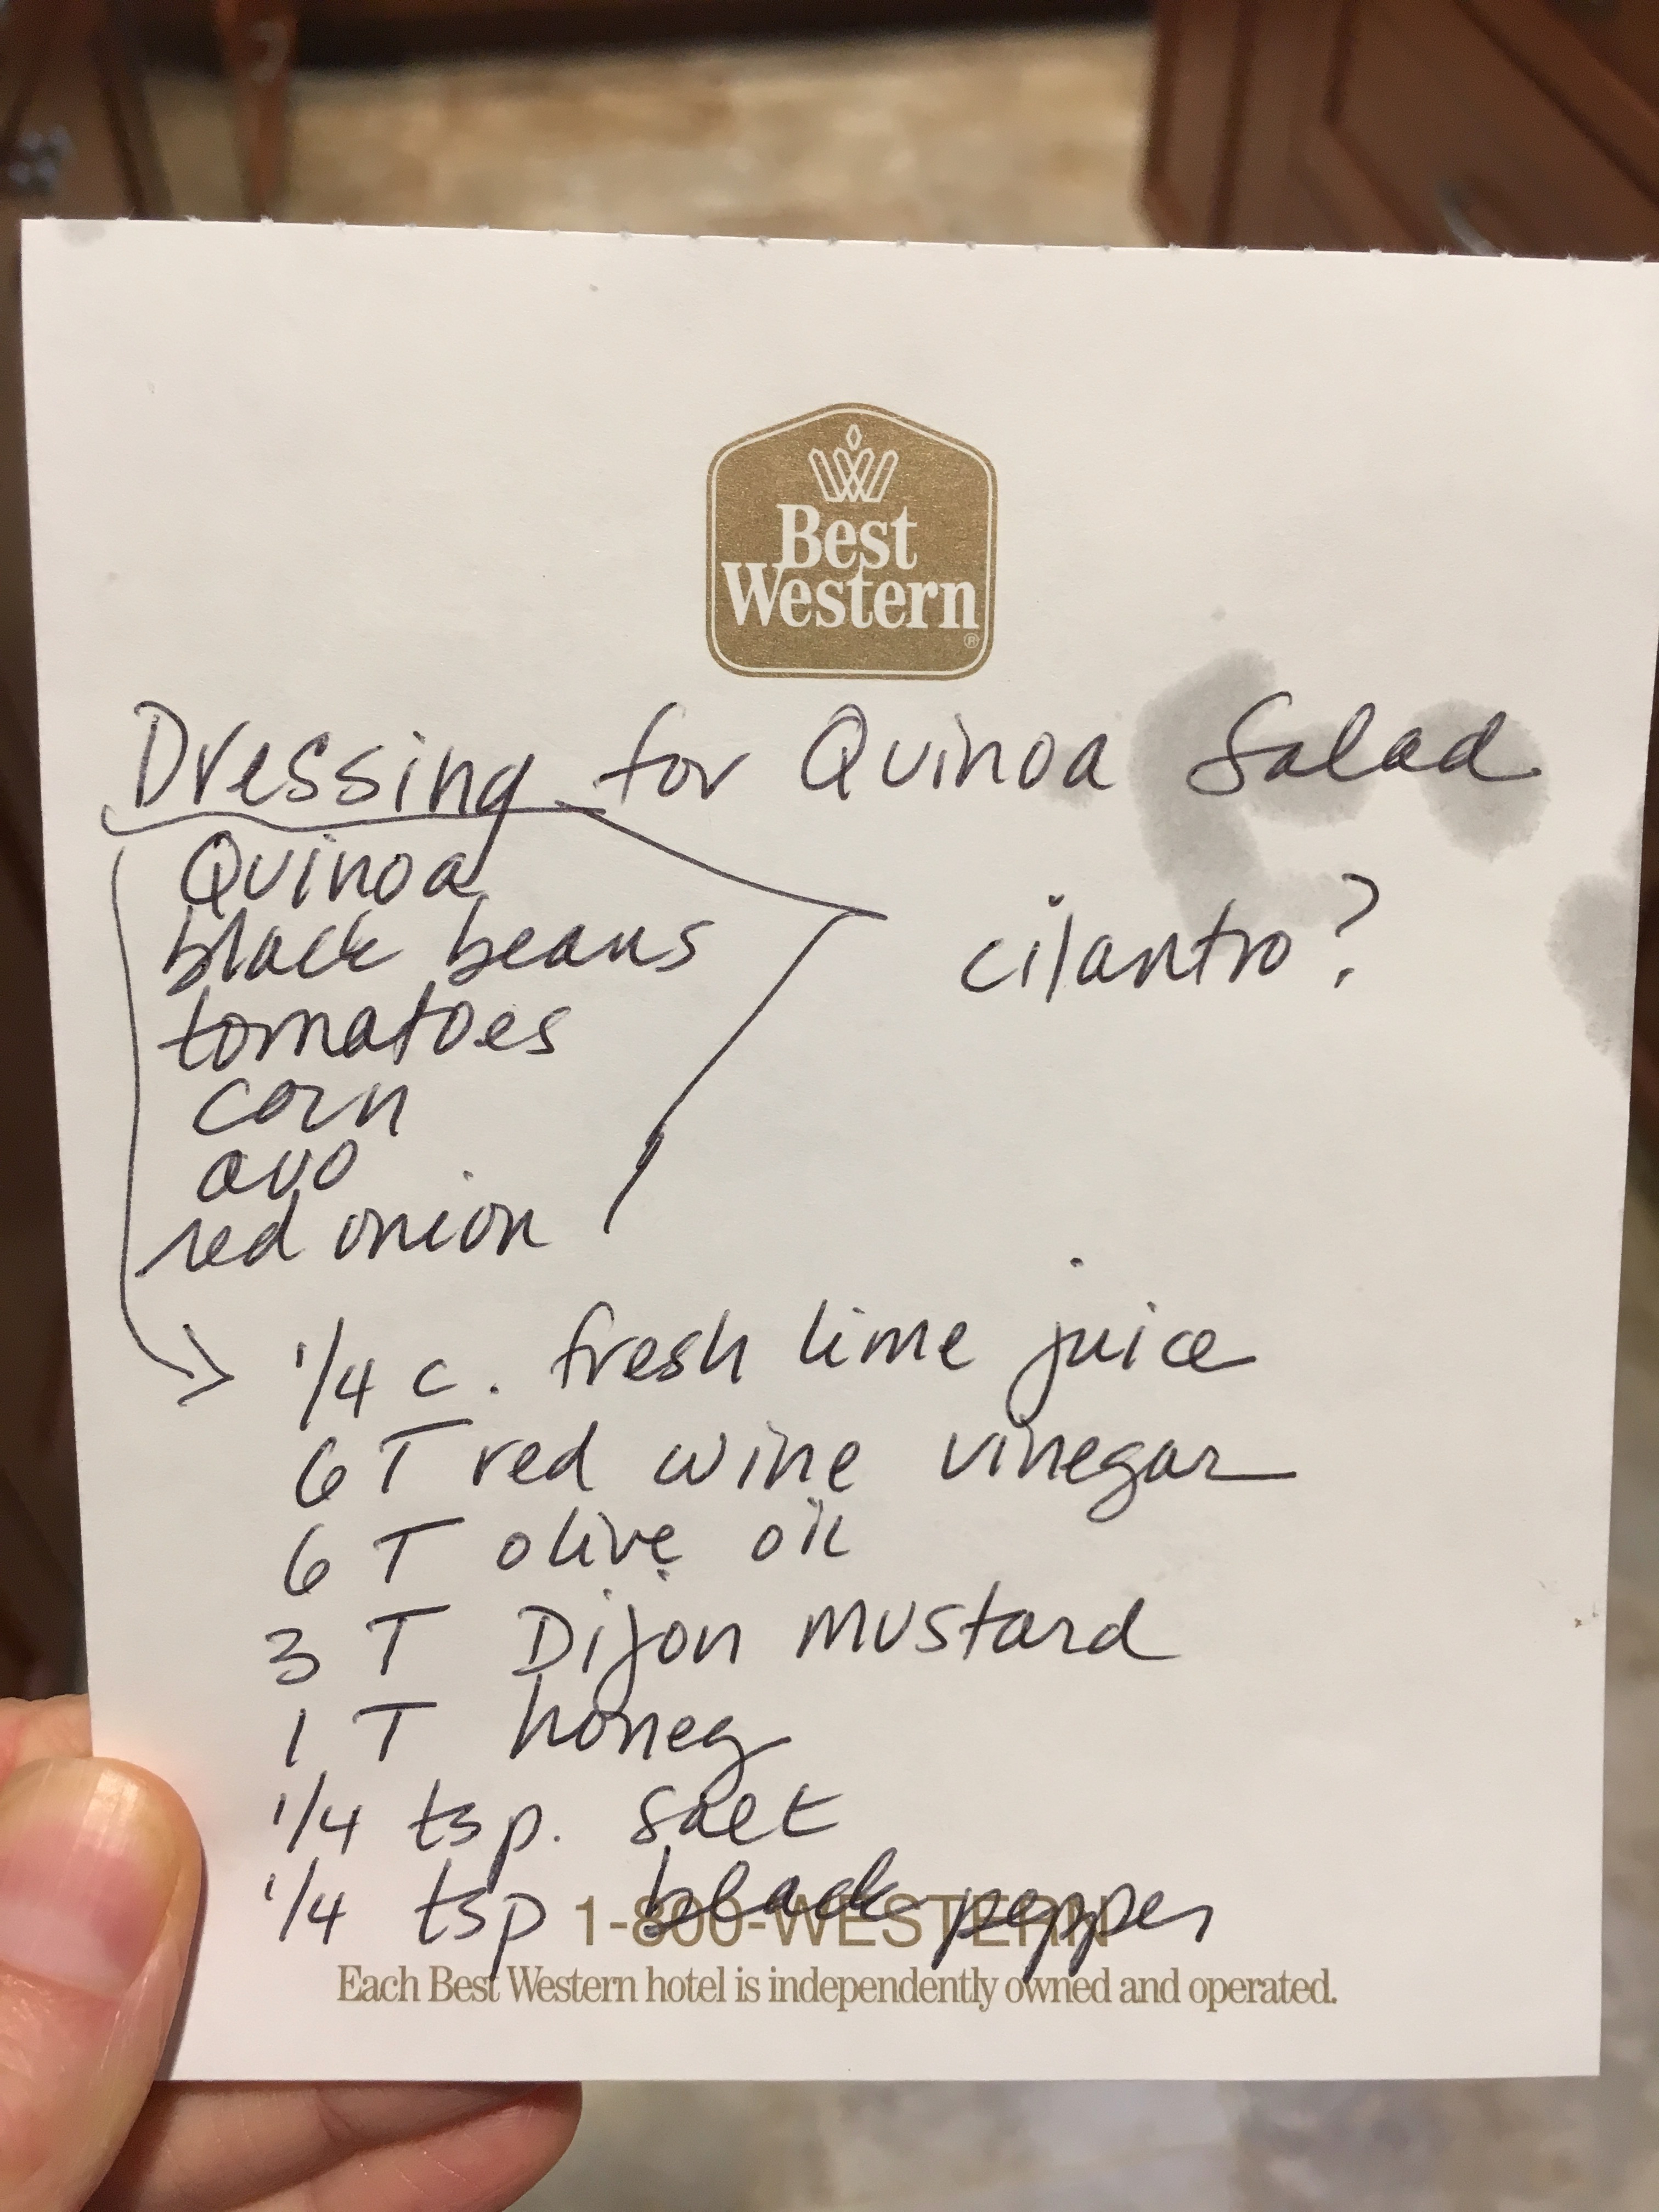 Best
Western
®
Dressing for Quinoa Salad
Quinoa
black beans
cilantro?
tomatoes
corn
avo
red onion
1/4 c. fresh lime juice
6 T red wine vinegar
6 T olive oil
3 T Dijon mustard
1 T honey
1/4 tsp. salt
1/4 tsp black pepper
1-800-WESTERN
Each Best Western hotel is independently owned and operated.